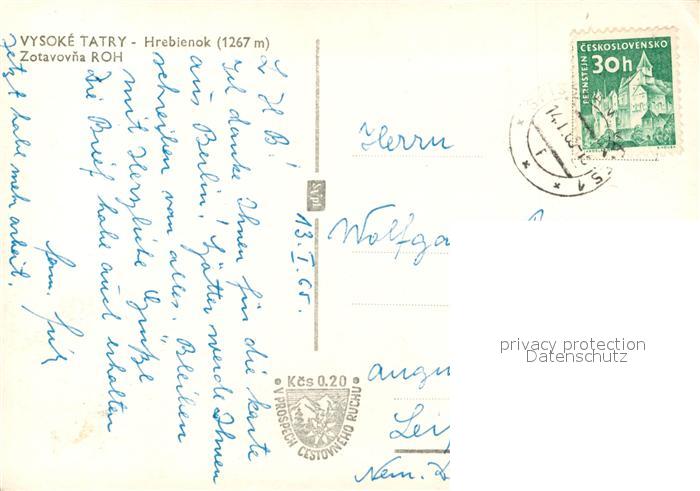 VYSOKÉ TATRY - Hrebienok (1267 m)
Zotavovňa ROH
L H B!
Ich danke Ihnen für die karte
aus Berlin! Später werde Ihnen
schreiben von alles. Bleiben
mit Herzliche Grüße
Die Brief habe auch erhalten
jetzt habe mehr arbeit.
fam.
13. I. 65.
Svpl
Herrn
Wolfga
augu
Lei
Nem. D
ČESKOSLOVENSKO
30h
PERNŠTEJN
14.I.65
Kčs 0.20
V PROSPĚCH CESTOVNÉHO RUCHU
privacy protection
Datenschutz